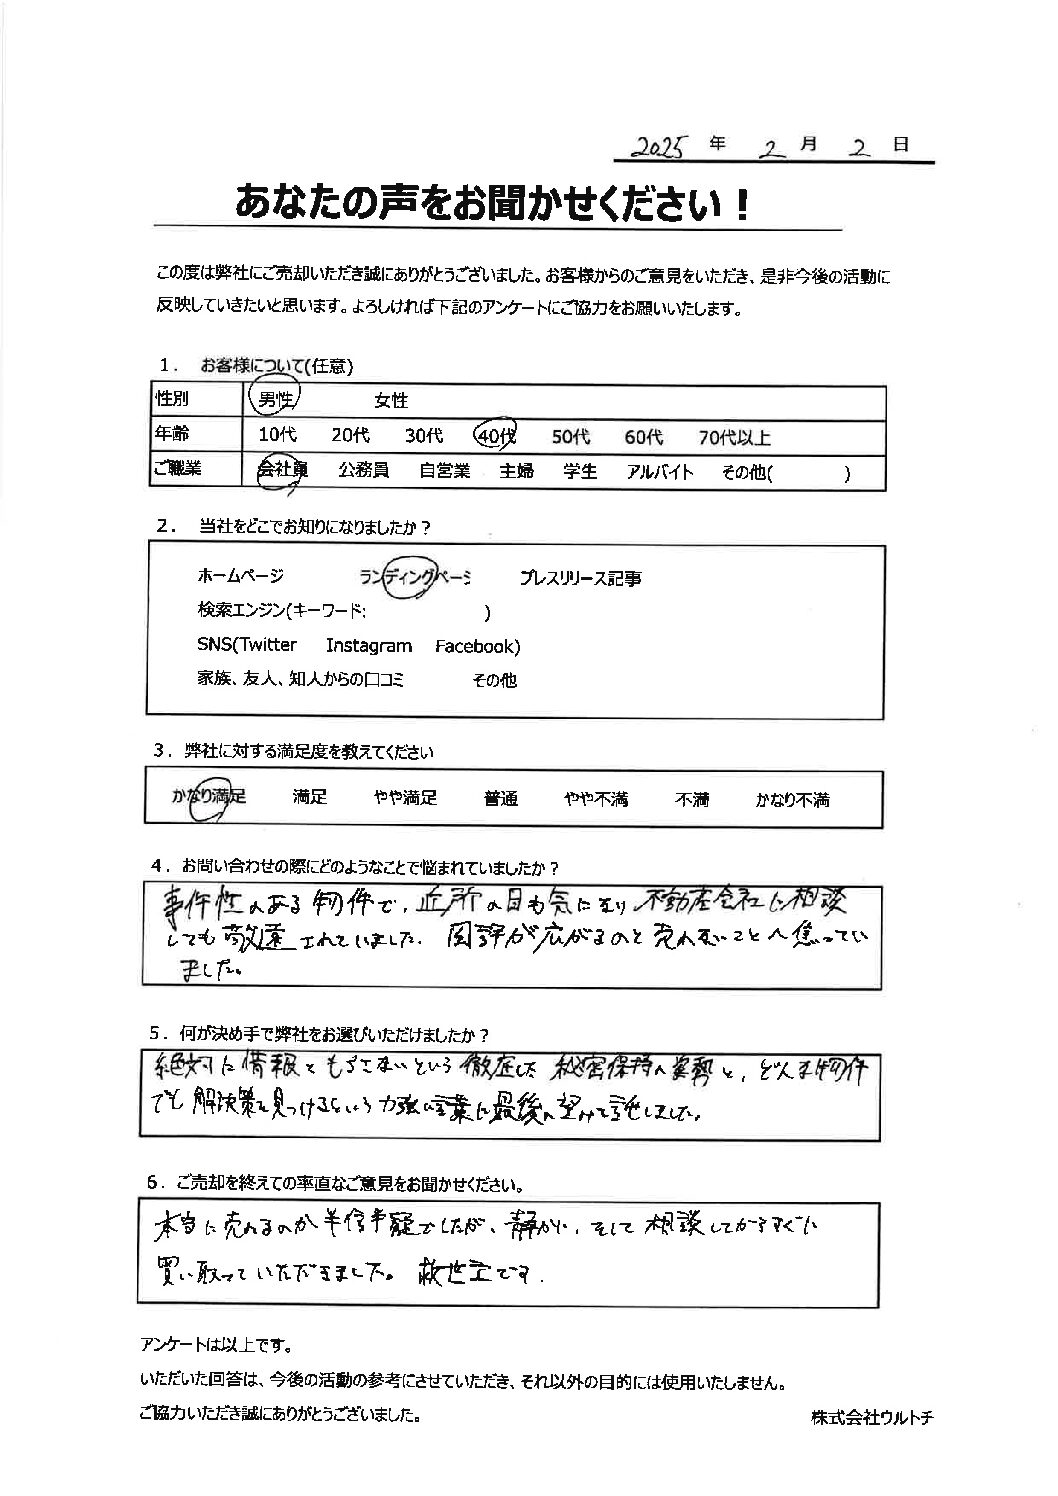 2025 年 2 月 2 日
あなたの声をお聞かせください！
この度は弊社にご売却いただき誠にありがとうございました。お客様からのご意見をいただき、是非今後の活動に
反映していきたいと思います。よろしければ下記のアンケートにご協力をお願いいたします。
1． お客様について(任意)
性別 男性 女性
年齢 10代 20代 30代 40代 50代 60代 70代以上
ご職業 会社員 公務員 自営業 主婦 学生 アルバイト その他( )
2． 当社をどこでお知りになりましたか？
ホームページ ランディングページ プレスリリース記事
検索エンジン(キーワード: )
SNS(Twitter Instagram Facebook)
家族、友人、知人からの口コミ その他
3．弊社に対する満足度を教えてください
かなり満足 満足 やや満足 普通 やや不満 不満 かなり不満
4．お問い合わせの際にどのようなことで悩まれていましたか？
事件性のある物件で、近所の目も気になり不動産会社に相談
しても敬遠されていました。 風評が広がるのと売れないことへ焦ってい
ました。
5．何が決め手で弊社をお選びいただけましたか？
絶対に情報をもらさないという徹底した秘密保持の姿勢と、どんな物件
でも解決策を見つけるという力強い言葉に最後の望みを託しました。
6．ご売却を終えての率直なご意見をお聞かせください。
本当に売れるのか半信半疑でしたが、静かに、そして相談してからすぐに
買い取っていただきました。 救世主です．
アンケートは以上です。
いただいた回答は、今後の活動の参考にさせていただき、それ以外の目的には使用いたしません。
ご協力いただき誠にありがとうございました。
株式会社ウルトチ